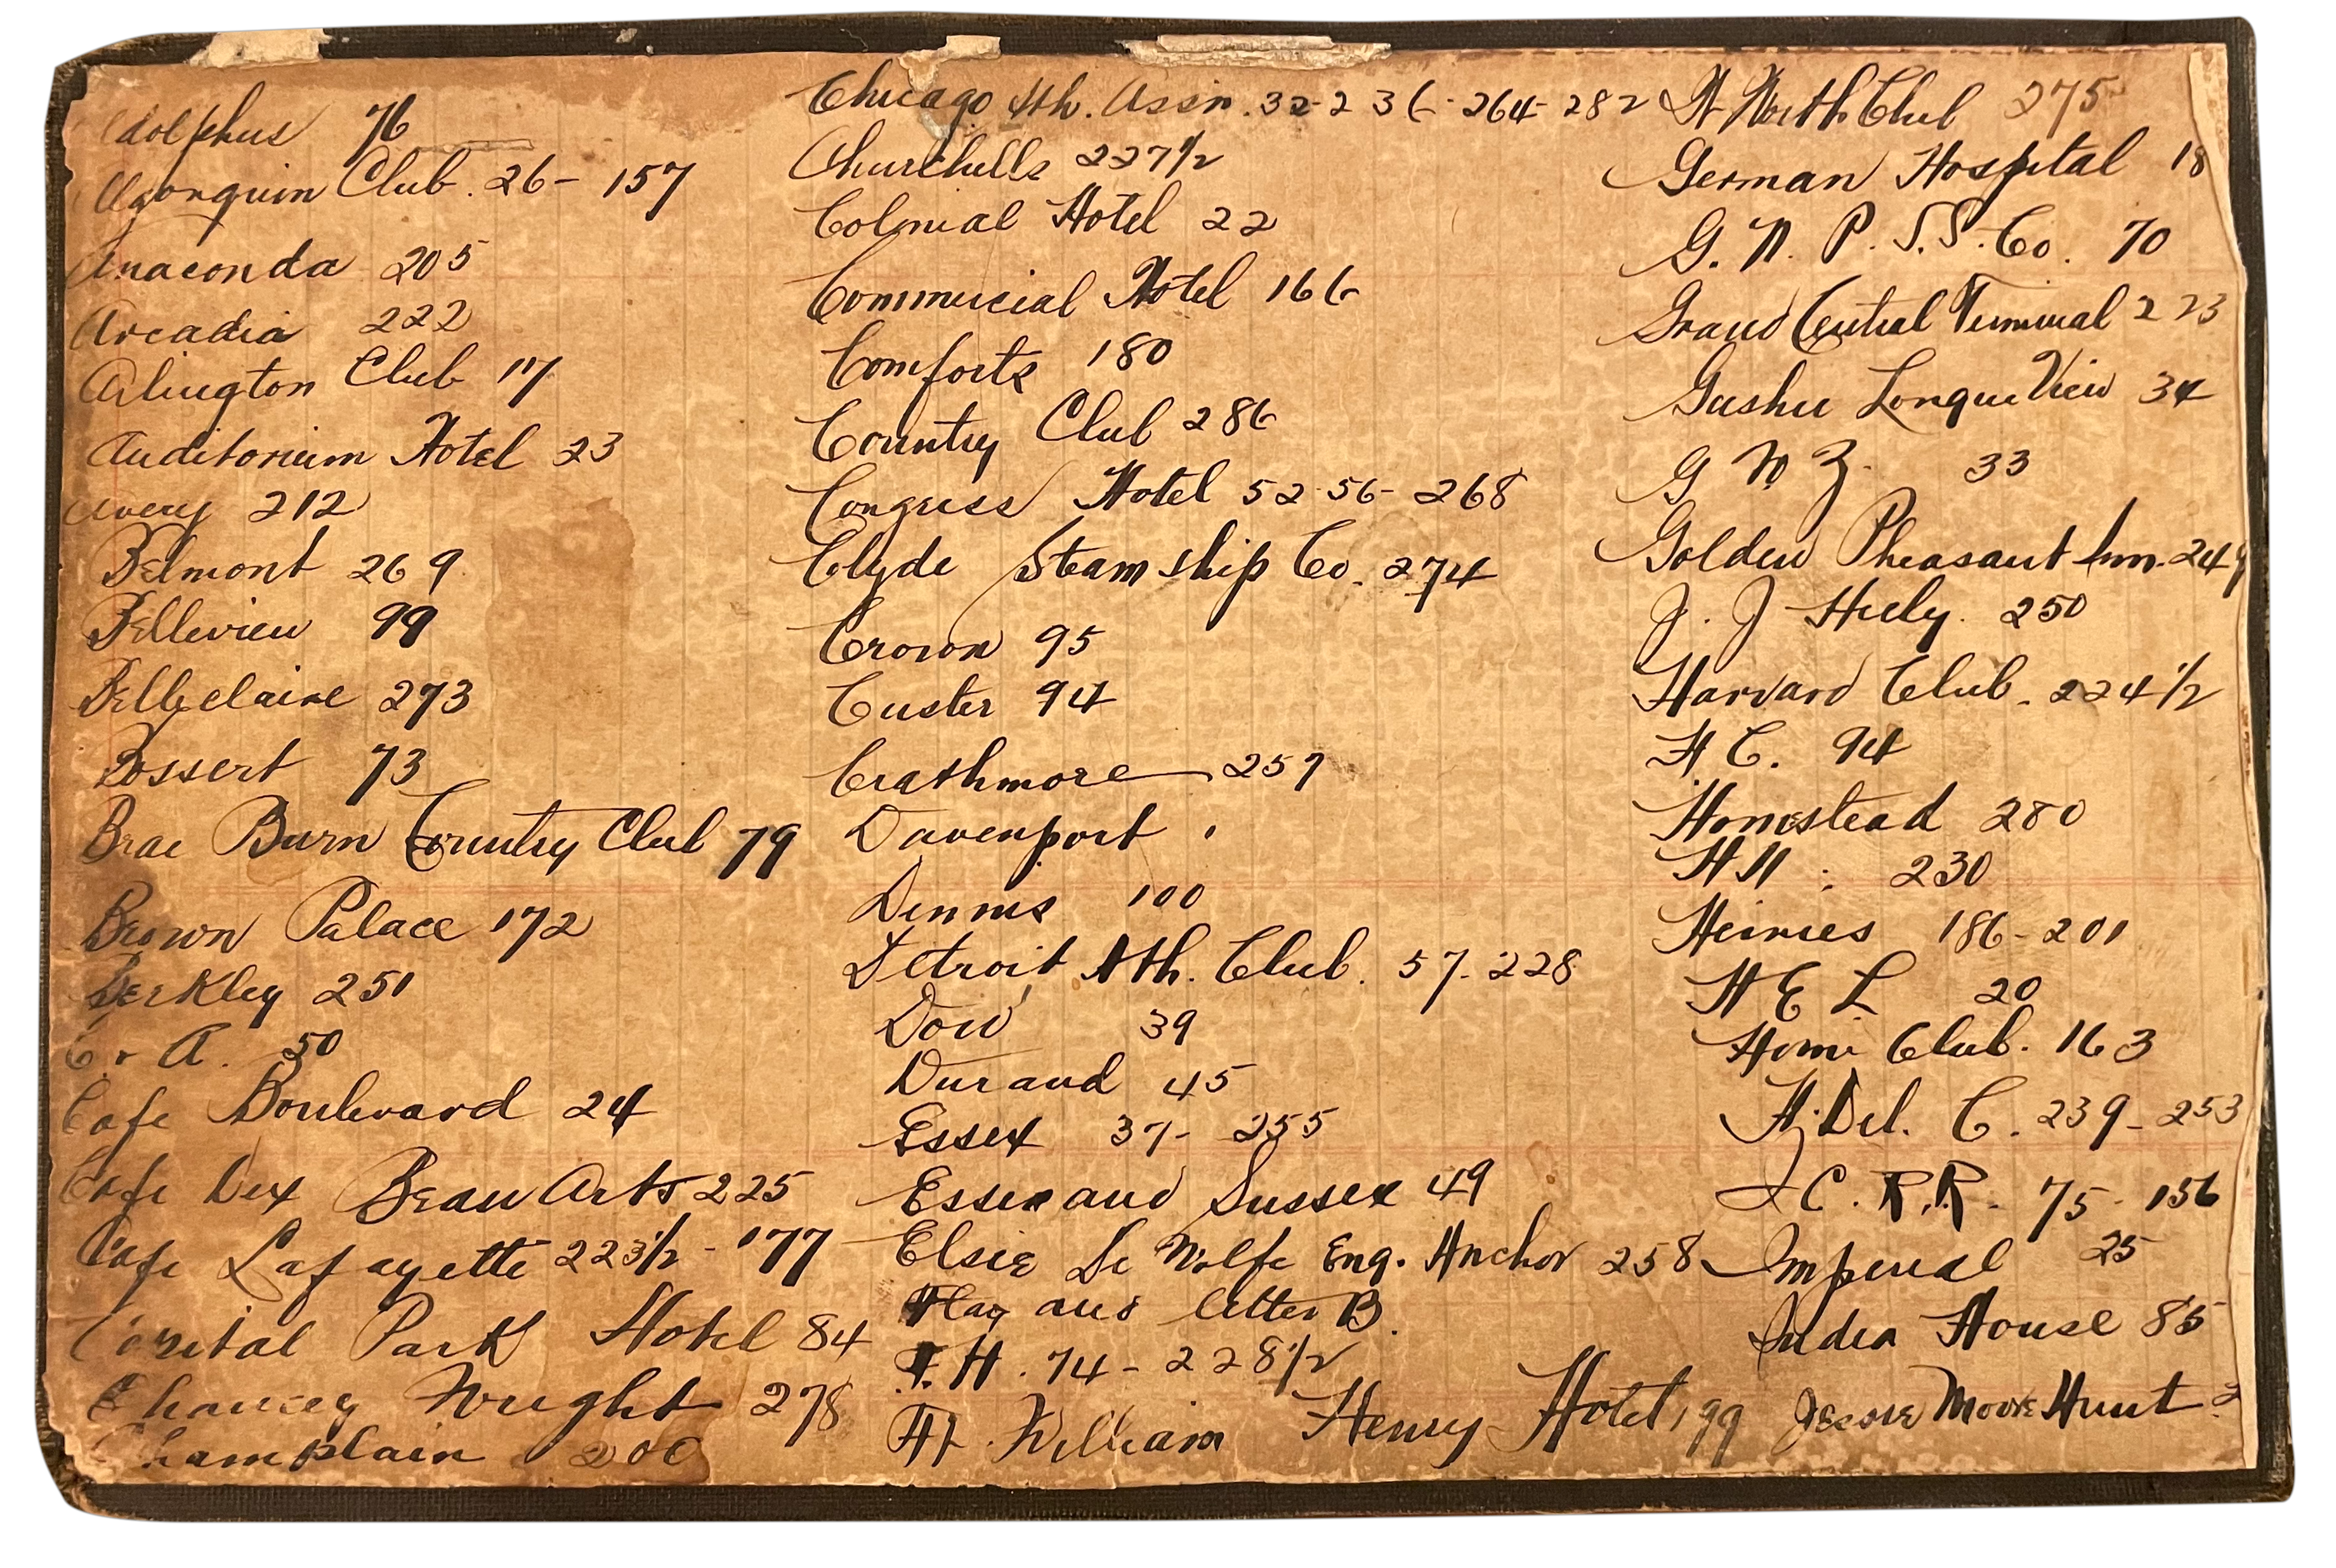 Adolphus 76
Algonquin Club. 26- 157
Anaconda 205
Arcadia 222
Arlington Club 117
Auditorium Hotel 23
Avery 212
Belmont 269.
Bellevieu 99
Belleclaire 273
Bossert 73
Brae Burn Country Club 79
Brown Palace 172
Berkley 251
C. & A. 50
Cafe Boulevard 24
Cafe Dex Beau Arts 225
Cafe Lafayette 223 1/2 - 177
Park Hotel 84
Chauncey Wright 278
Champlain 200
Chicago Ath. Assn. 32-236-264-282
Churchells 227 1/2
Colonial Hotel 22
Commercial Hotel 166
Comforts 180
Country Club 286
Congress Hotel 52-56-268
Clyde Steam ship Co. 274
Crown 95
Custer 94
Crathmore 257
Davenport
Dennis 100
Detroit Ath. Club. 57-228
Dow 39
Durand 45
Essex 37- 255
Essex and Sussex 49
Elsie De Wolfe Eng. Anchor 258
Flag and letter B.
F.H. 74-228 1/2
Ft. William Henry Hotel 199
Ft Worth Club 275
German Hospital 18
G. N. P. S.S. Co. 70
Grand Central Terminal 223
Longue View 34
G N 33
Golden Pheasant Inn. 249
J. J Hiely. 250
Harvard Club. 224 1/2
H C. 94
Homestead 280
H H 230
Heinies 186-201
H E L 20
Home Club. 163
H. Del. C. 239-253
I C. R.R. 75-156
Imperial 25
India House 85
Jessie Moore Hunt